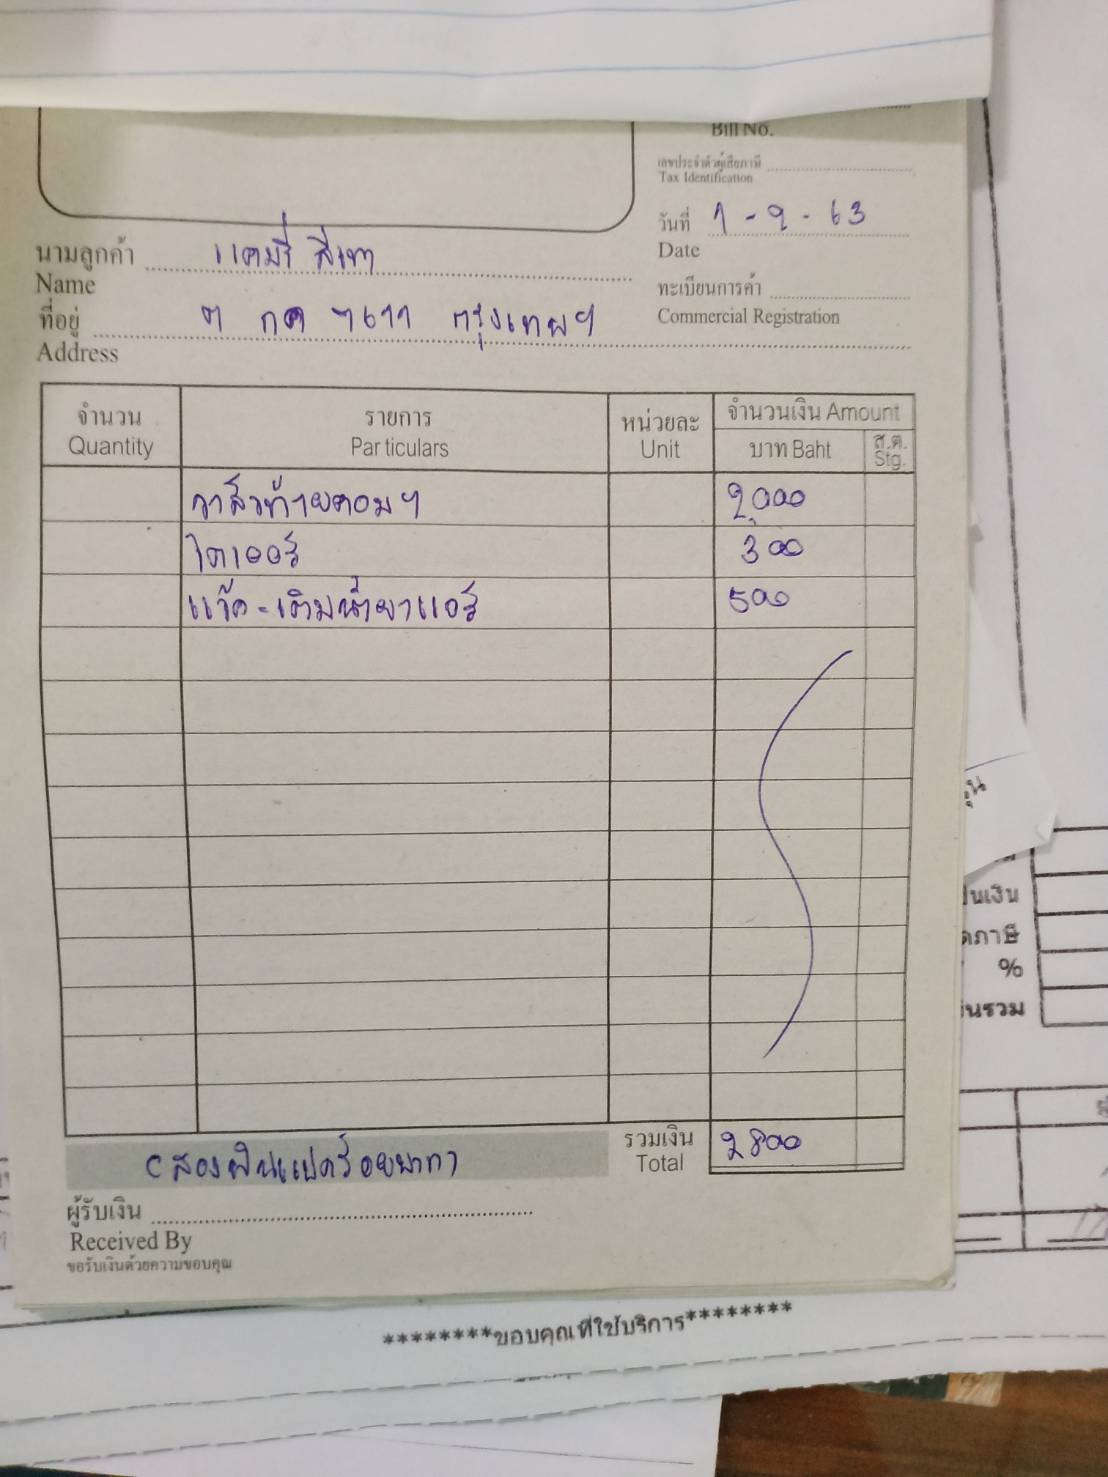 Bill No.
เลขประจำตัวผู้เสียภาษี
Tax Identification
วันที่ 1-9-63
Date
นามลูกค้า แคมรี่ สีเทา
Name
ทะเบียนการค้า
Commercial Registration
ที่อยู่ ฎ กค 7677 กรุงเทพฯ
Address
จำนวน รายการ หน่วยละ จำนวนเงิน Amount
Quantity Particulars Unit บาท Baht ส.ต. Stg.
วาล์วท้ายคอมฯ 2,000
ไดเออร์ 300
แว๊ค-เติมน้ำยาแอร์ 500
รวมเงิน 2800
Total
(สองพันแปดร้อยบาท)
ผู้รับเงิน
Received By
ขอรับเงินด้วยความขอบคุณ
%
********ขอบคุณที่ใช้บริการ********